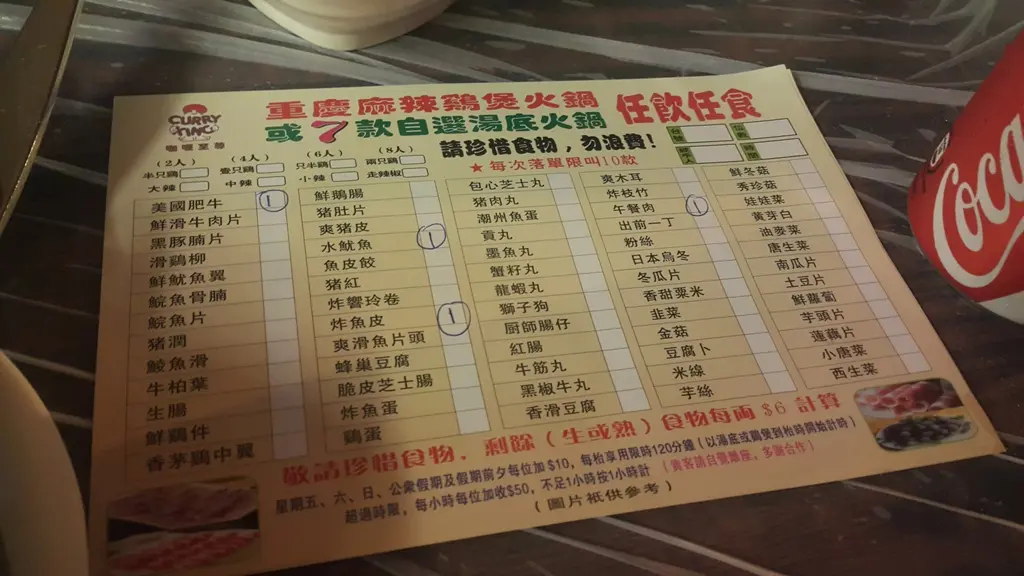 CURRY
KING
咖喱至尊
重慶麻辣鷄煲火鍋
或7款自選湯底火鍋
任飲任食
請珍惜食物，勿浪費!
★每次落單限叫10款
(2人) (4人) (6人) (8人)
半只鷄 壹只鷄 只半鷄 兩只鷄
大辣 中辣 小辣 走辣椒
美國肥牛 1
鮮滑牛肉片
黑豚腩片
滑鷄柳
鮮魷魚翼
鯇魚骨腩
鯇魚片
猪潤
鮫魚滑
牛柏葉
生腸
鮮鷄件
香茅鷄中翼
鮮鵝腸
猪肚片
爽猪皮
水魷魚 1
魚皮餃
猪紅
炸響玲卷
炸魚皮 1
爽滑魚片頭
蜂巢豆腐
脆皮芝士腸
炸魚蛋
鷄蛋
包心芝士丸
猪肉丸
潮州魚蛋
貢丸
墨魚丸
蟹籽丸
龍蝦丸
獅子狗
厨師腸仔
紅腸
牛筋丸
黑椒牛丸
香滑豆腐
爽木耳
炸枝竹
午餐肉 1
出前一丁
粉絲
日本烏冬
冬瓜片
香甜粟米
韭菜
金菇
豆腐卜
米線
芋絲
鮮冬菇
秀珍菇
娃娃菜
黄芽白
油麥菜
唐生菜
南瓜片
土豆片
鮮蘿蔔
芋頭片
蓮藕片
小唐菜
西生菜
敬請珍惜食物，剩餘(生或熟)食物每両$6計算
星期五、六、日、公衆假期及假期前夕每位加$10，每枱享用限時120分鐘(以湯底或鷄煲到枱時開始計時)
超過時限，每小時每位加收$50，不足1小時按1小時計 (貴客請自備雜座，多謝合作)
(圖片祇供參考)
Coca